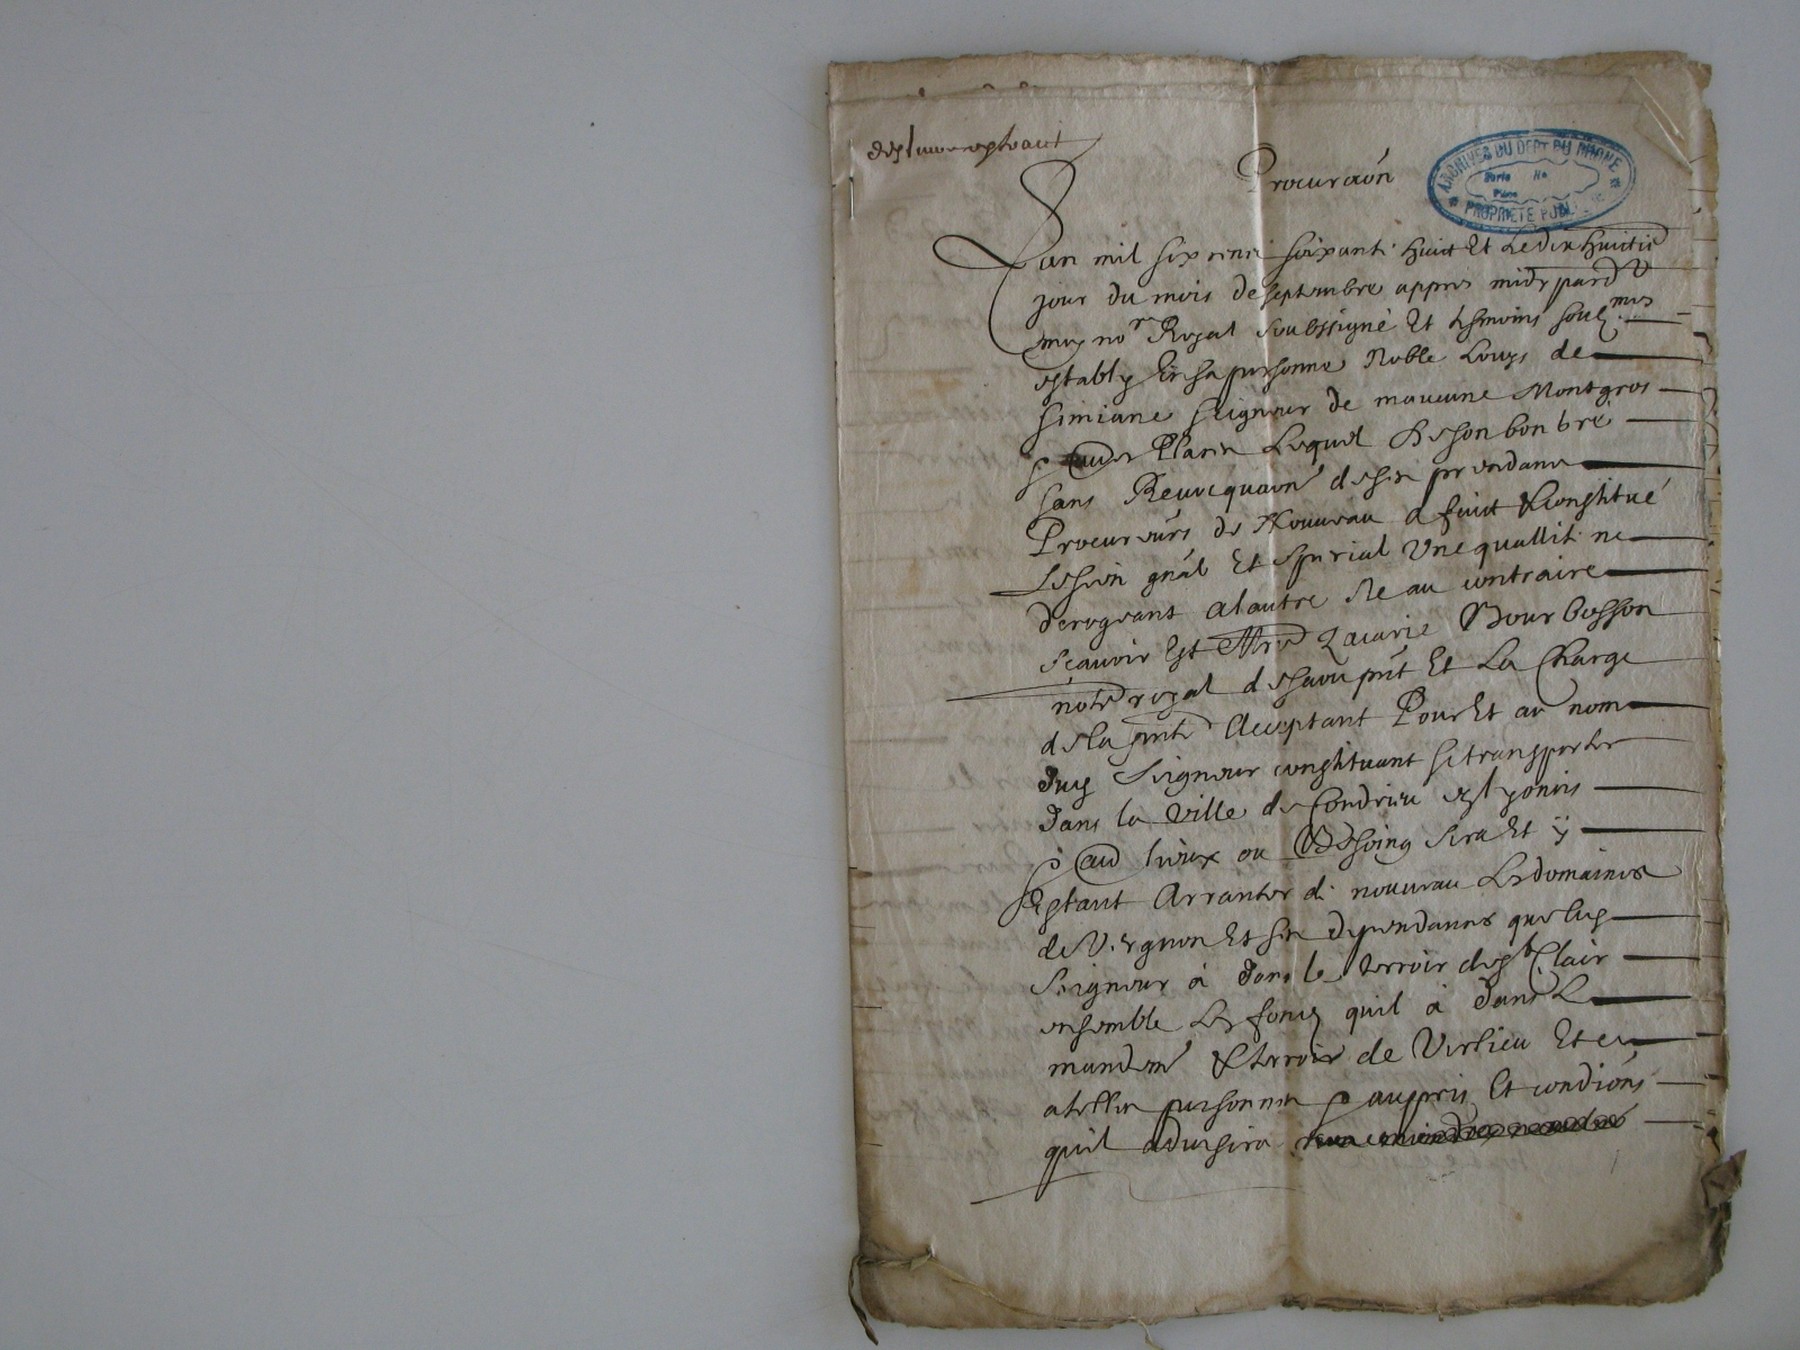 Procuraõn
ARCHIVES DU DEPT DU RHONE
Série No
Pièce
PROPRIETE PUBLIQUE
Lan mil six cens soixante huict Et Le dix huictie
jour du mois de septembre appres midy pard
moy nore Royal soubssigné Et tesmoins soubz
estably En sa personne Noble Louys de
simiane seigneur de maucune Montgros
& aues Places Lequel de son bon gré
sans Revocquaõn de ses precedans
Procureurs de Nouveau a faict & constitué
Le sien gñal Et special Une quallité ne
derogeant a lautre Ne au contraire
scauoir Est Mre Zacarie Bourbosson
note royal de saou pñt Et La Charge
de la pñte acceptant Pour Et au nom
dud seigneur constituant se transporter
dans la ville de Condrieu en lyonois
& au lieux ou Besoing sera Et ÿ
Estant Arranter de nouveau Les domaines
de Vergnon Et ses dependances que led
seigneur à dans le terroir de st Clair
ensemble Les fonds quil à dans Le
mandemt & terroir de Verlieu Et ce
a telles personnes & aux pris Et condiõns
quil aduisera